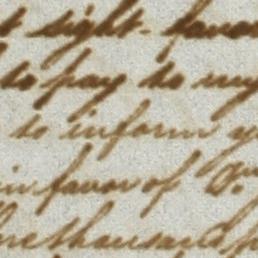 t sight. favor
to pay to my
to inform y
in favor of
thousand